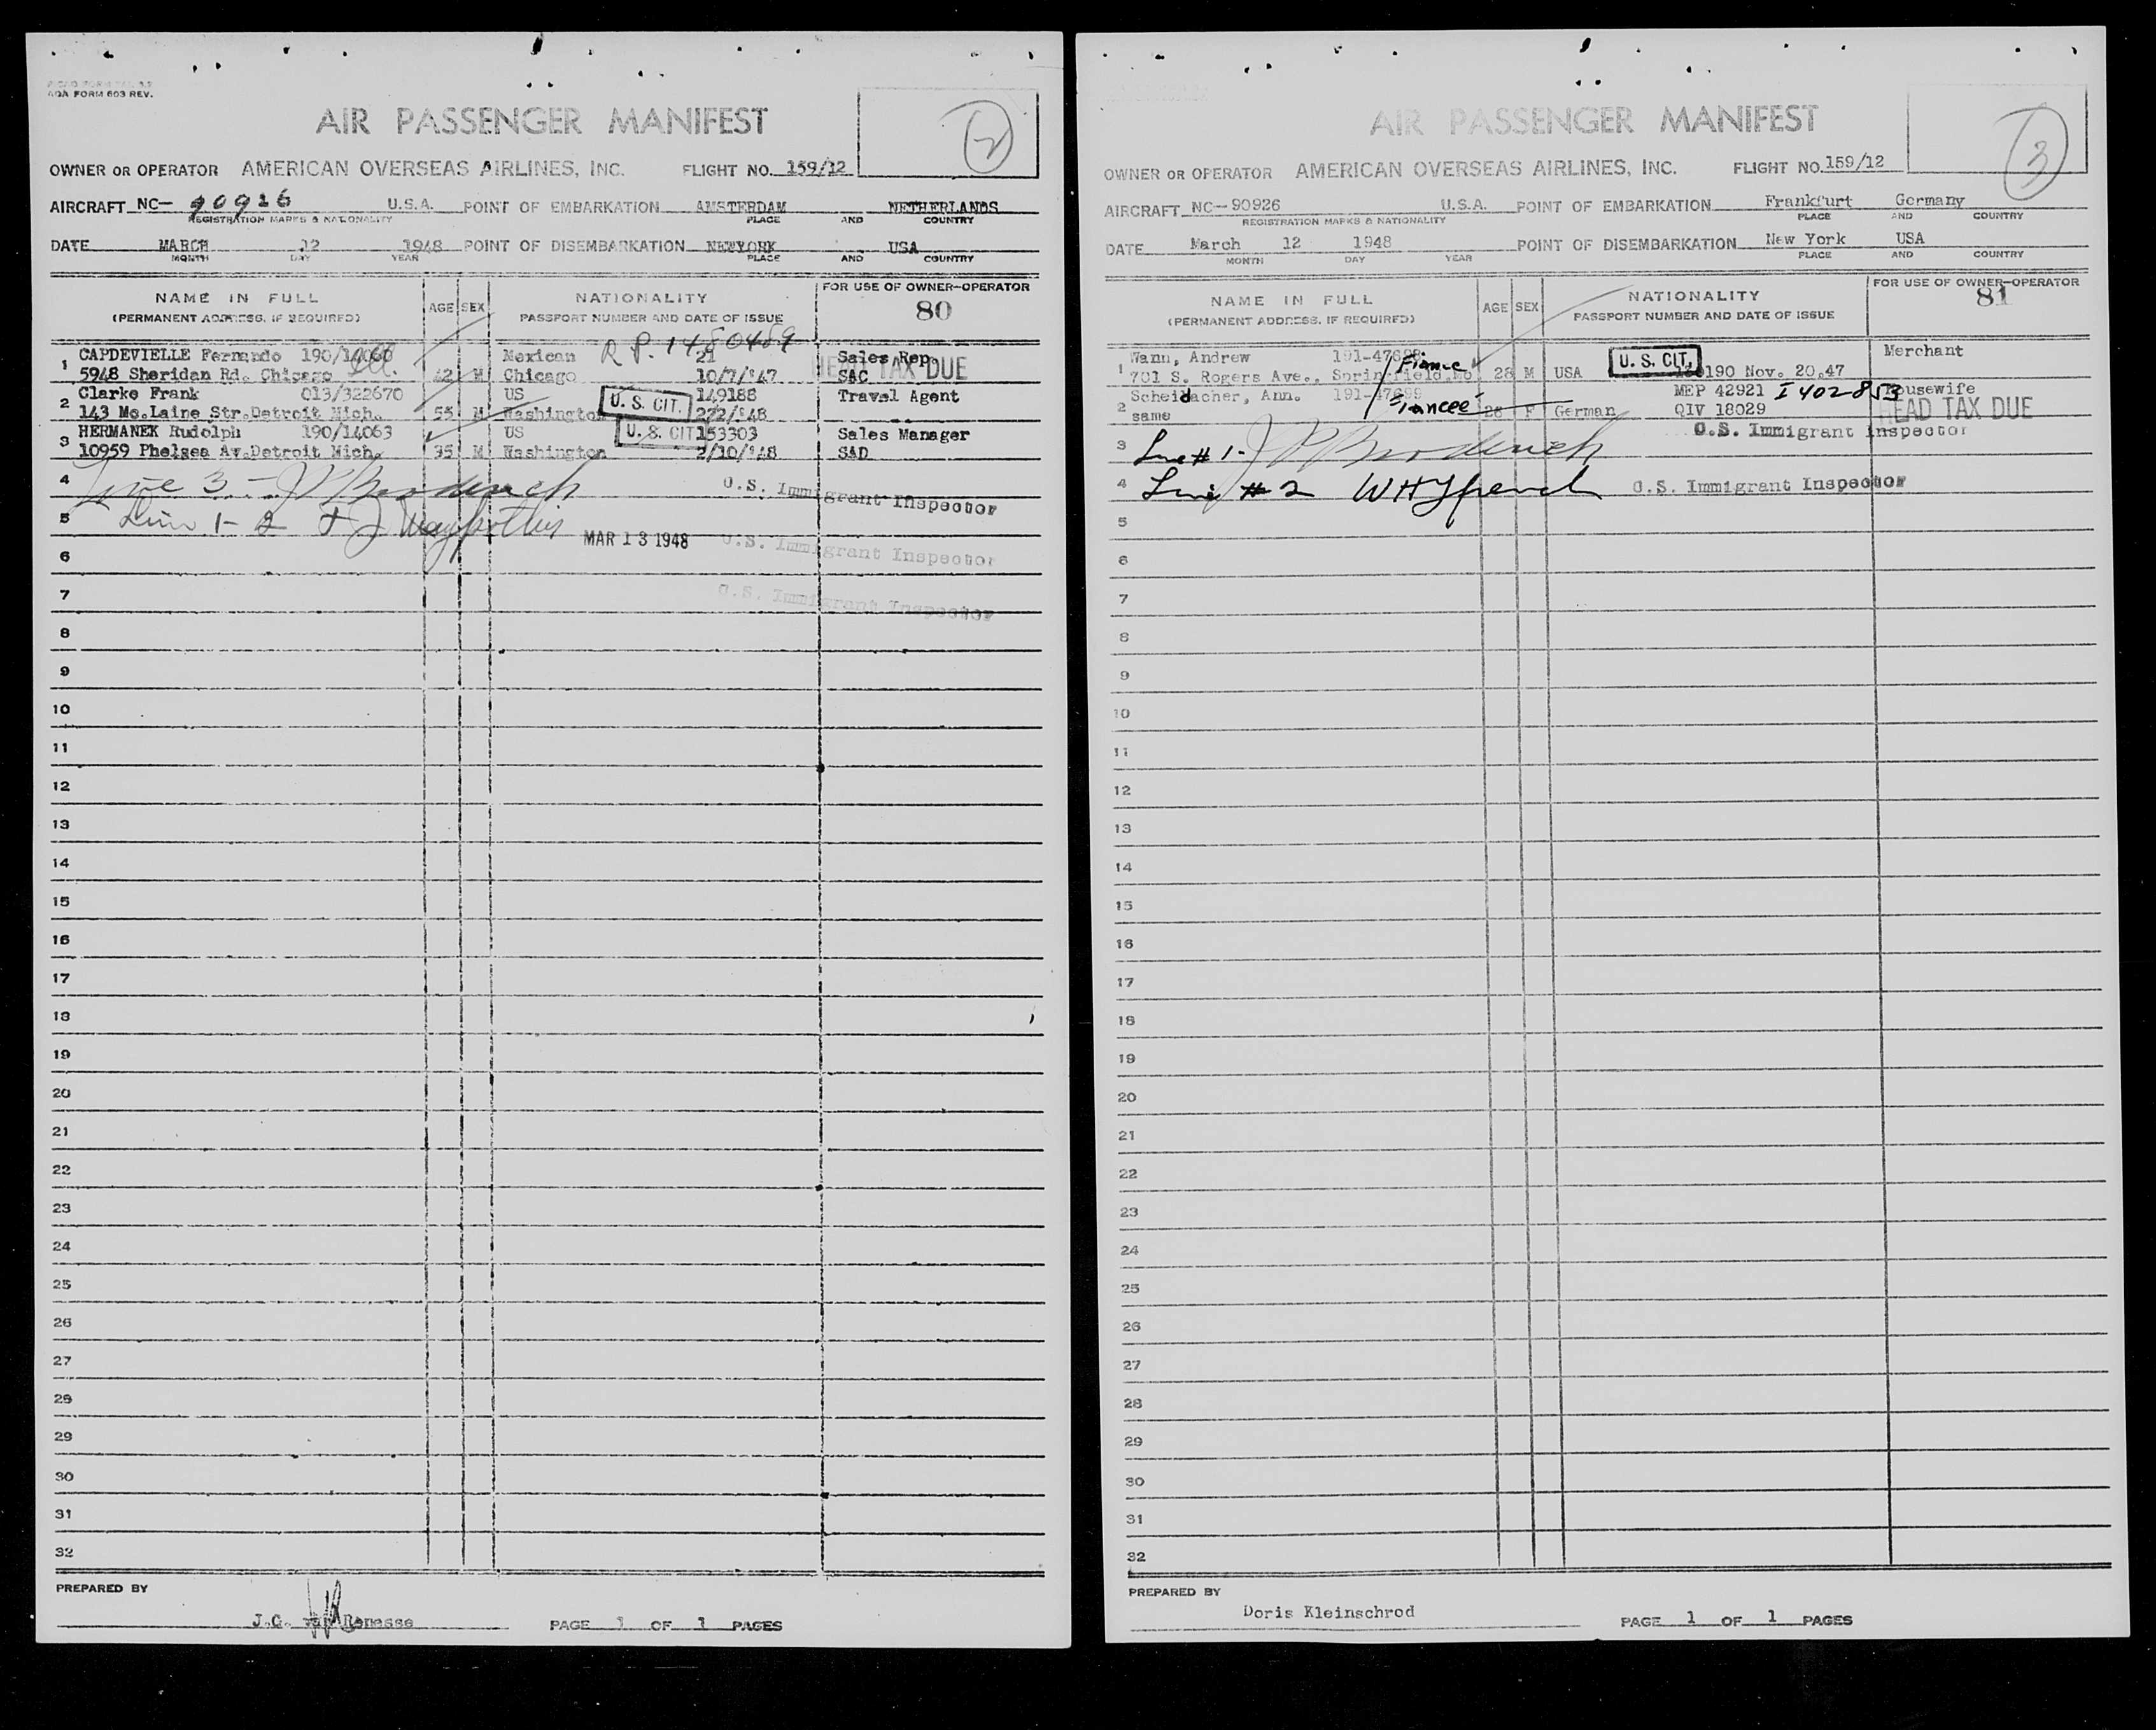 AOA FORM 603 REV.
AIR PASSENGER MANIFEST
2
OWNER OR OPERATOR AMERICAN OVERSEAS AIRLINES, INC. FLIGHT NO. 159/12
AIRCRAFT NC- 90926 U.S.A. POINT OF EMBARKATION AMSTERDAM NETHERLANDS
REGISTRATION MARKS & NATIONALITY PLACE AND COUNTRY
DATE MARCH 12 1948 POINT OF DISEMBARKATION NEWYORK USA
MONTH DAY YEAR PLACE AND COUNTRY
NAME IN FULL
(PERMANENT ADDRESS, IF REQUIRED)
AGE SEX
NATIONALITY
PASSPORT NUMBER AND DATE OF ISSUE
FOR USE OF OWNER-OPERATOR
80
R.P. 1480489
1 CAPDEVIELLE Fernando 190/14060 Mexican 21 Sales Rep.
5948 Sheridan Rd. Chicago 42 M Chicago 10/7/'47 SAC
HEAD TAX DUE
2 Clarke Frank 013/322670 US 149188 Travel Agent
143 Mc.Laine Str.Detroit Mich. 55 M Washington 272/'48
U. S. CIT.
3 HERMANEK Rudolph 190/14063 US 153303 Sales Manager
10959 Phelsea Av.Detroit Mich. 35 M Washington 2/10/'48 SAD
U. S. CIT
4 Line 3 - J P Broderick U.S. Immigrant Inspector
5 Line 1-2
MAR 13 1948 U.S. Immigrant Inspector
6
7 U.S. Immigrant Inspector
8
9
10
11
12
13
14
15
16
17
18
19
20
21
22
23
24
25
26
27
28
29
30
31
32
PREPARED BY
J.C. van Renesse PAGE 1 OF 1 PAGES
AIR PASSENGER MANIFEST
3
OWNER OR OPERATOR AMERICAN OVERSEAS AIRLINES, INC. FLIGHT NO. 159/12
AIRCRAFT NC-90926 U.S.A. POINT OF EMBARKATION Frankfurt Germany
REGISTRATION MARKS & NATIONALITY PLACE AND COUNTRY
DATE March 12 1948 POINT OF DISEMBARKATION New York USA
MONTH DAY YEAR PLACE AND COUNTRY
NAME IN FULL
(PERMANENT ADDRESS, IF REQUIRED)
AGE SEX
NATIONALITY
PASSPORT NUMBER AND DATE OF ISSUE
FOR USE OF OWNER-OPERATOR
81
1 Wann, Andrew 191-47698 Fiance U. S. CIT. Merchant
701 S. Rogers Ave., Springfield,Mo 28 M USA 190 Nov. 20.47
2 Scheidacher, Ann. 191-47699 MEP 42921 I 402853 Housewife
same Fiancee 28 F German QIV 18029 HEAD TAX DUE
U.S. Immigrant Inspector
3 Line # 1- J P Broderick
4 Line # 2 U.S. Immigrant Inspector
5
6
7
8
9
10
11
12
13
14
15
16
17
18
19
20
21
22
23
24
25
26
27
28
29
30
31
32
PREPARED BY
Doris Kleinschrod PAGE 1 OF 1 PAGES